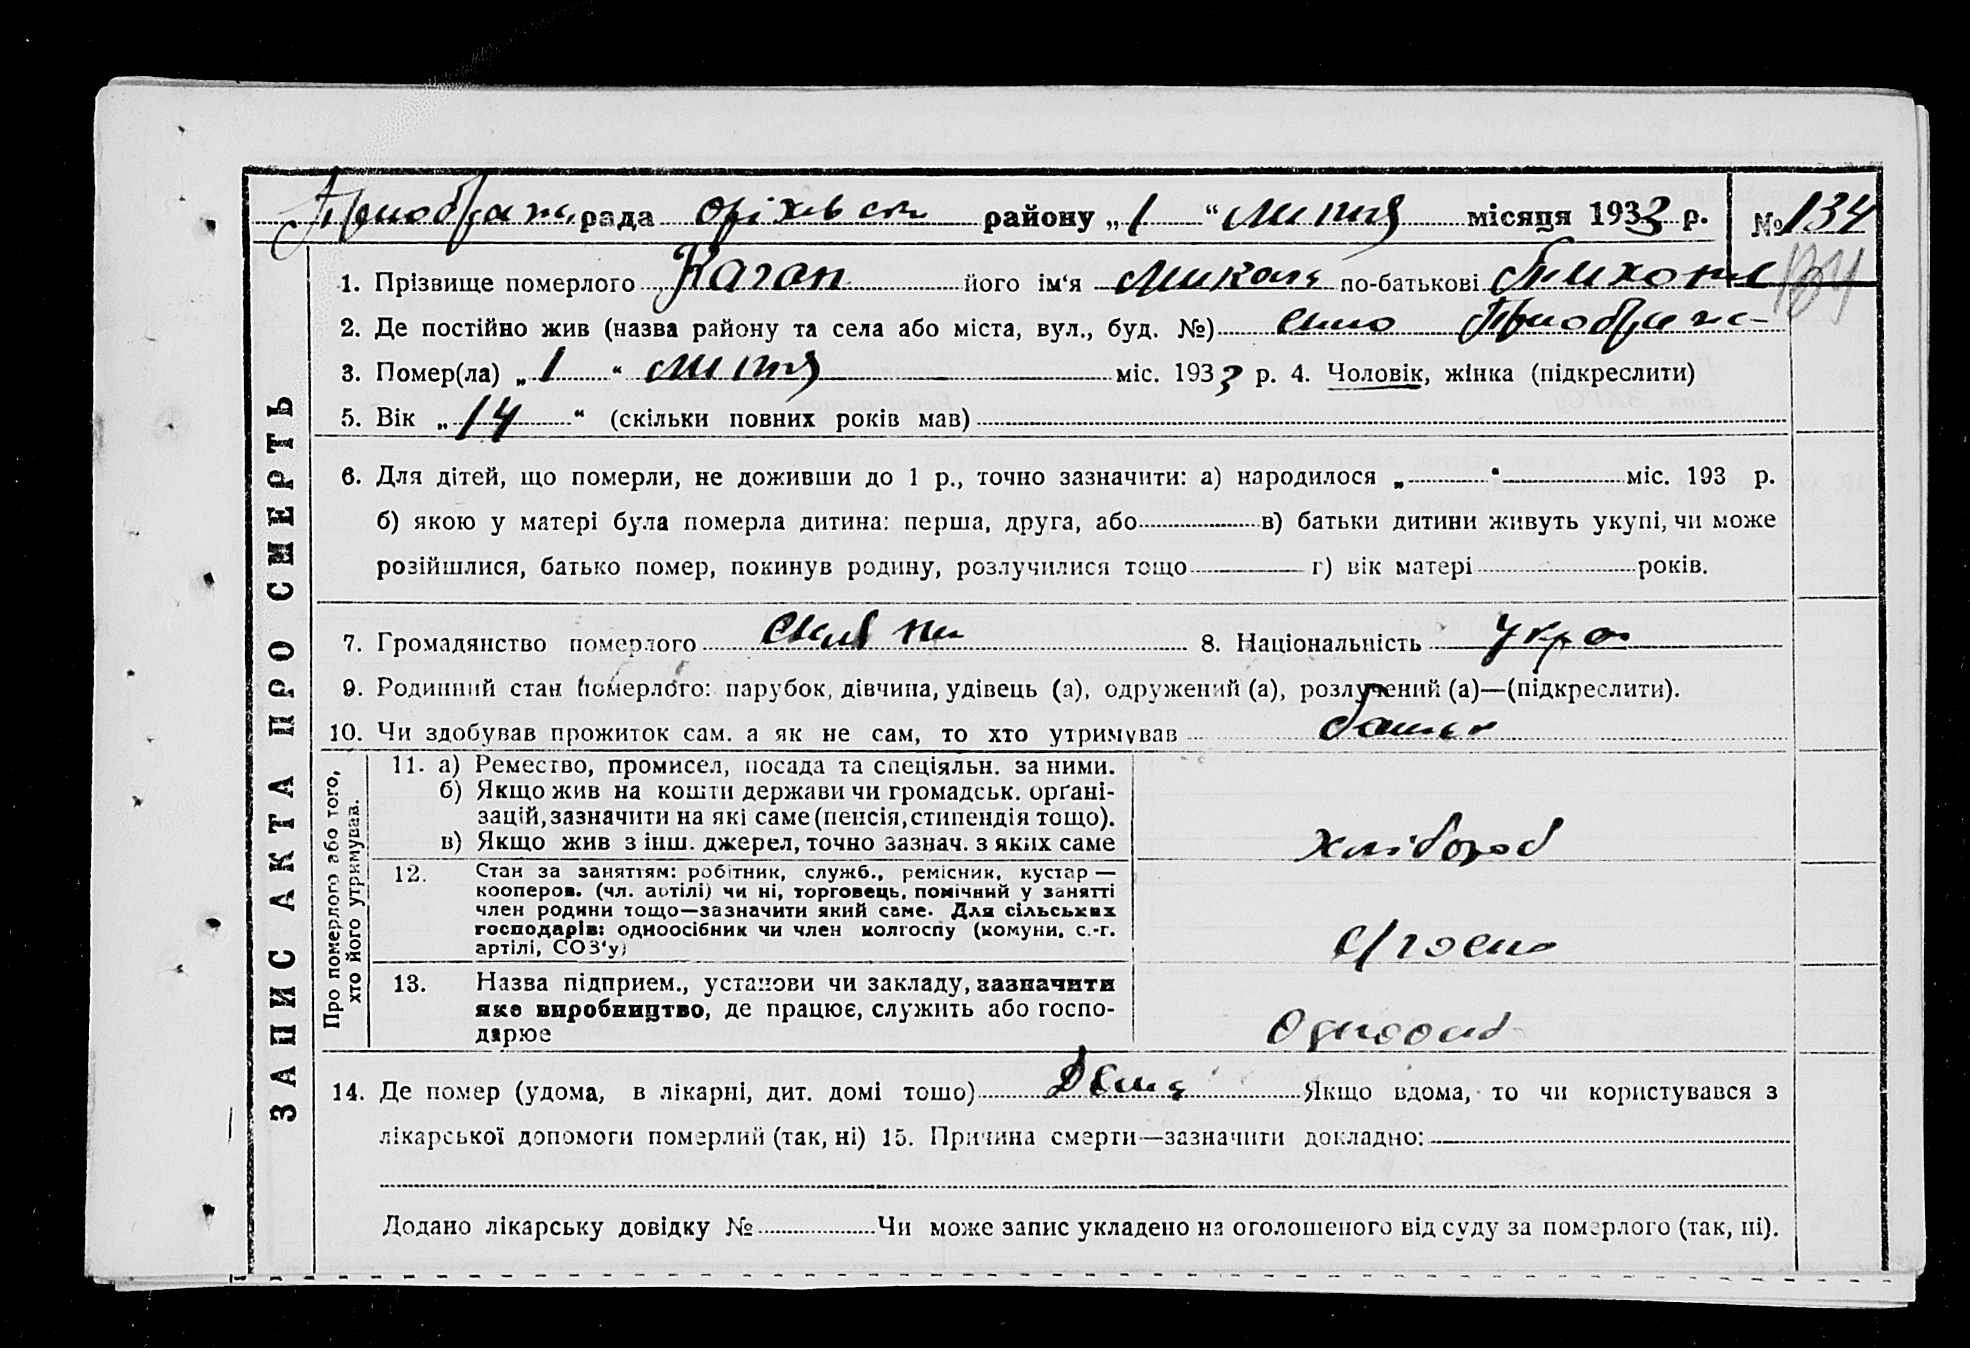 рада Оріхівськ району „1“ Липня місяця 1933 р. № 134
134
1. Прізвище померлого Каган його ім'я Микола по-батькові Тихон
2. Де постійно жив (назва району та села або міста, вул., буд. №) село
3. Помер(ла) „1“ липня міс. 1933 р. 4. Чоловік, жінка (підкреслити)
5. Вік „14“ (скільки повних років мав)
6. Для дітей, що померли, не доживши до 1 р., точно зазначити: а) народилося „ “ міс. 193 р.
б) якою у матері була померла дитина: перша, друга, або в) батьки дитини живуть укупі, чи може
розійшлися, батько помер, покинув родину, розлучилися тощо г) вік матері років.
7. Громадянство померлого 8. Національність Укра
9. Родинний стан померлого: парубок, дівчина, удівець (а), одружений (а), розлучений (а)—(підкреслити).
10. Чи здобував прожиток сам. а як не сам, то хто утримував батько
ЗАПИС АКТА ПРО СМЕРТЬ
Про померлого або того,
хто його утримував.
11. а) Ремество, промисел, посада та спеціяльн. за ними.
б) Якщо жив на кошти держави чи громадськ. орґані-
зацій, зазначити на які саме (пенсія, стипендія тощо).
в) Якщо жив з інш. джерел, точно зазнач. з яких саме
хлібороб
12. Стан за заняттям: робітник, служб., ремісник, кустар—
кооперов. (чл. артілі) чи ні, торговець, помічний у занятті
член родини тощо—зазначити який саме. Для сільських
господарів: одноосібник чи член колгоспу (комуни, с.-г.
артілі, СОЗ'у)
13. Назва підприєм., установи чи закладу, зазначити
яке виробництво, де працює, служить або госпо-
дарює
Одноосіб
14. Де помер (удома, в лікарні, дит. домі тощо) Дома Якщо вдома, то чи користувався з
лікарської допомоги померлий (так, ні) 15. Причина смерти—зазначити докладно:
Додано лікарську довідку № Чи може запис укладено на оголошеного від суду за померлого (так, ні).